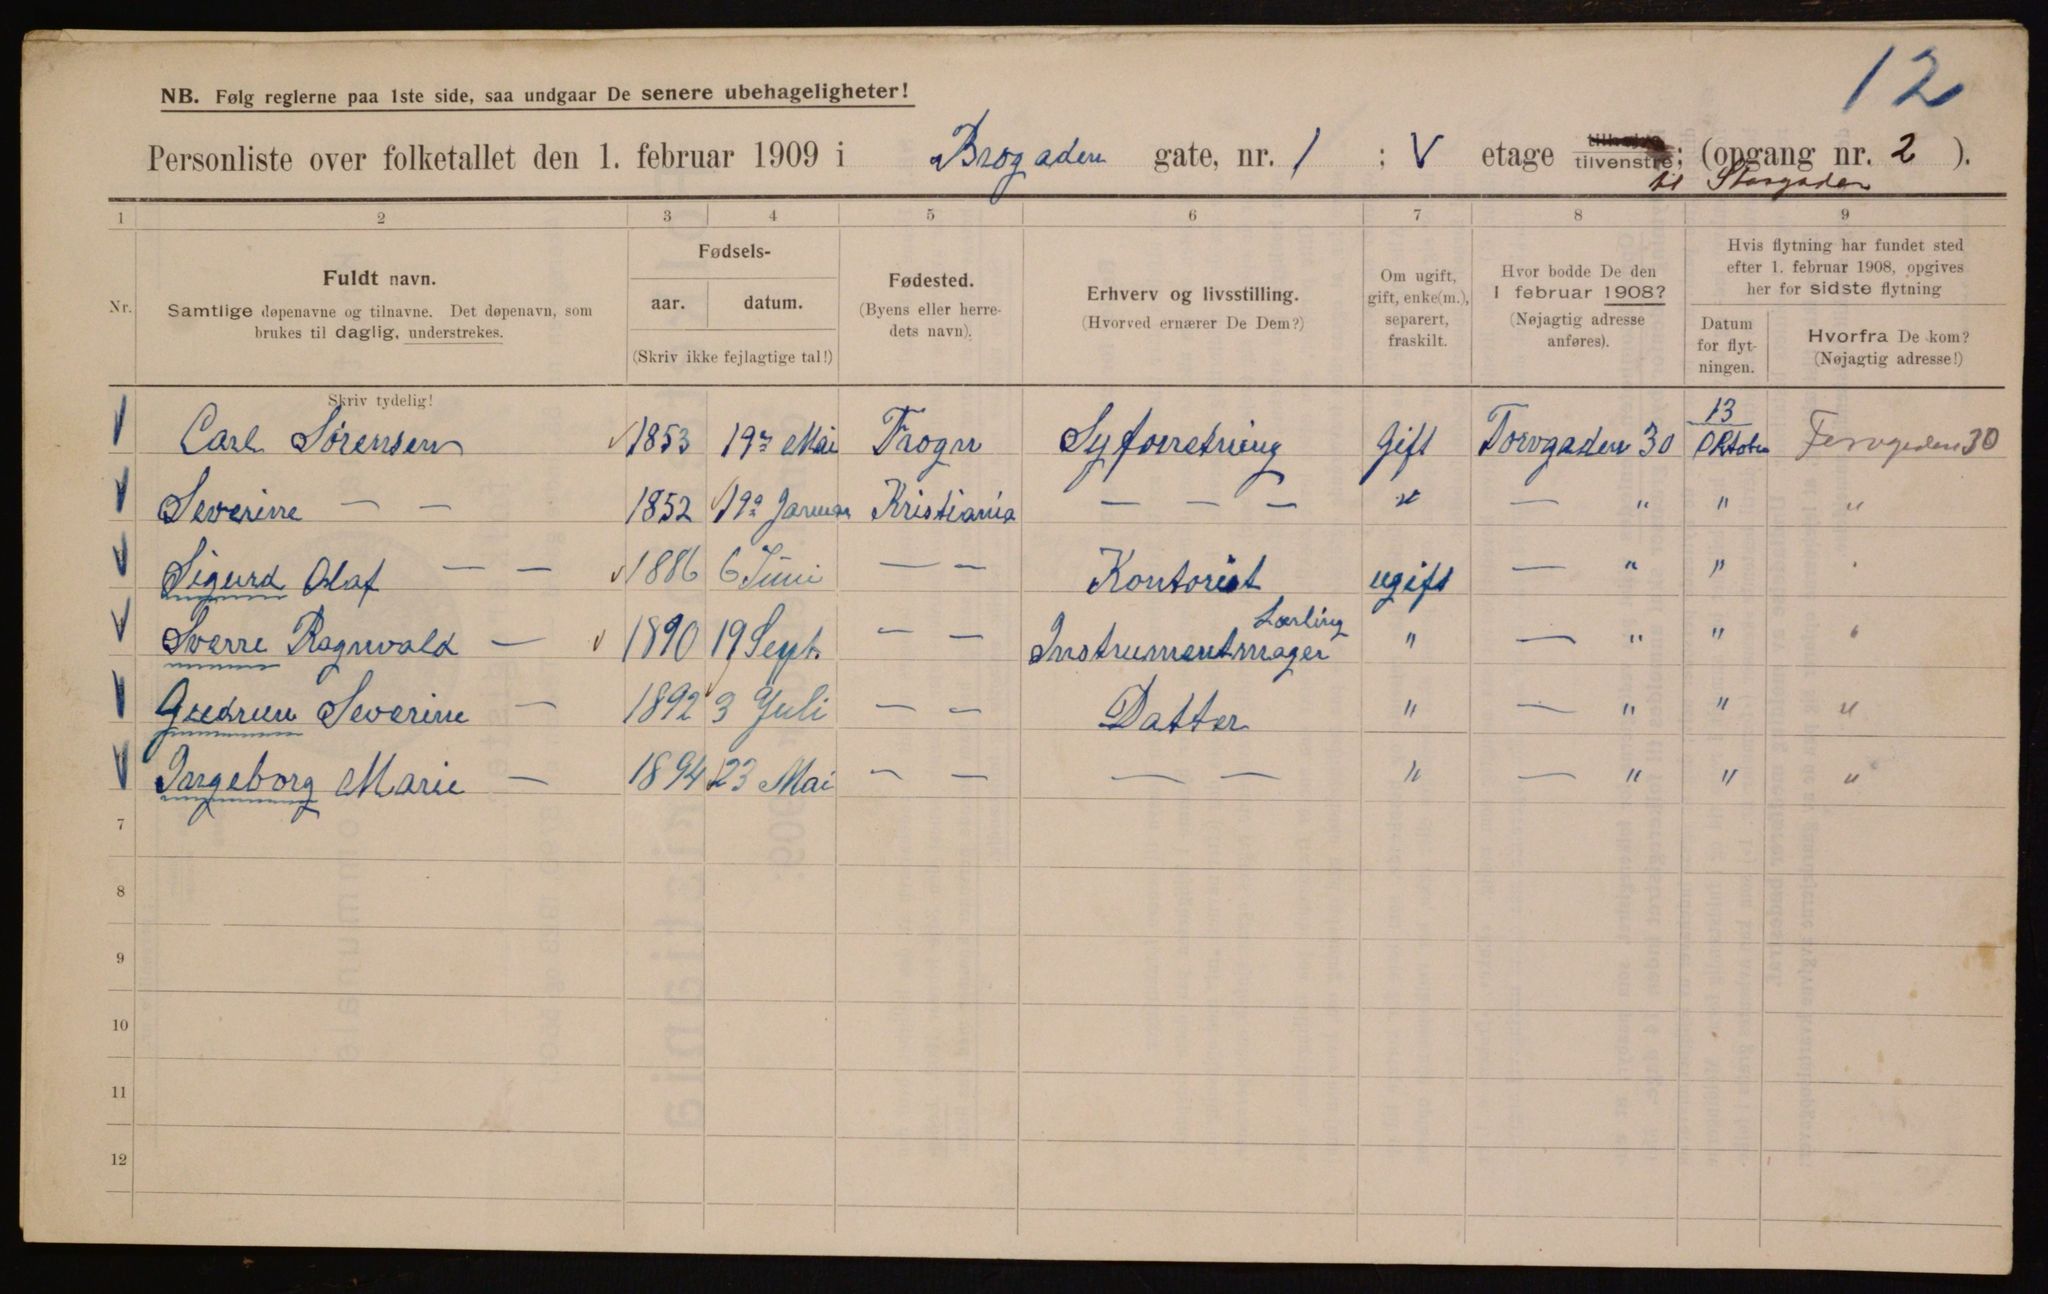 12
NB. Følg reglerne paa 1ste side, saa undgaar De senere ubehageligheter!
Personliste over folketallet den 1. februar 1909 i Brogaden gate, nr. 1 ; V etage tilhøjre tilvenstre; (opgang nr. 2 ).
til Storgaden
1 2 3 4 5 6 7 8 9
Nr.
Fuldt navn.
Samtlige døpenavne og tilnavne. Det døpenavn, som
brukes til daglig, understrekes.
Skriv tydelig!
Fødsels-
aar. datum.
(Skriv ikke fejlagtige tal!)
Fødested.
(Byens eller herre-
dets navn).
Erhverv og livsstilling.
(Hvorved ernærer De Dem?)
Om ugift,
gift, enke(m.),
separert,
fraskilt.
Hvor bodde De den
1 februar 1908?
(Nøjagtig adresse
anføres).
Hvis flytning har fundet sted
efter 1. februar 1908, opgives
her for sidste flytning
Datum
for flyt-
ningen.
Hvorfra De kom?
(Nøjagtig adresse!)
Carl Sørensen 1853 19 Mai Frogn Syforretning Gift Torvgaden 30 13 Oktober Torvgaden 30
Severine — — 1852 19 Januar Kristiania — — — " — " " "
Sigurd Olaf — — 1886 6 Juni — — Kontorist ugift — " "
Sverre Ragnvald — 1890 19 Sept. — — Instrumentmager Lærling " — " " "
Gudrun Severine — 1892 3 Juli — — Datter " — " " "
Ingeborg Marie — 1894 23 Mai — — — — " — " " "
7
8
9
10
11
12